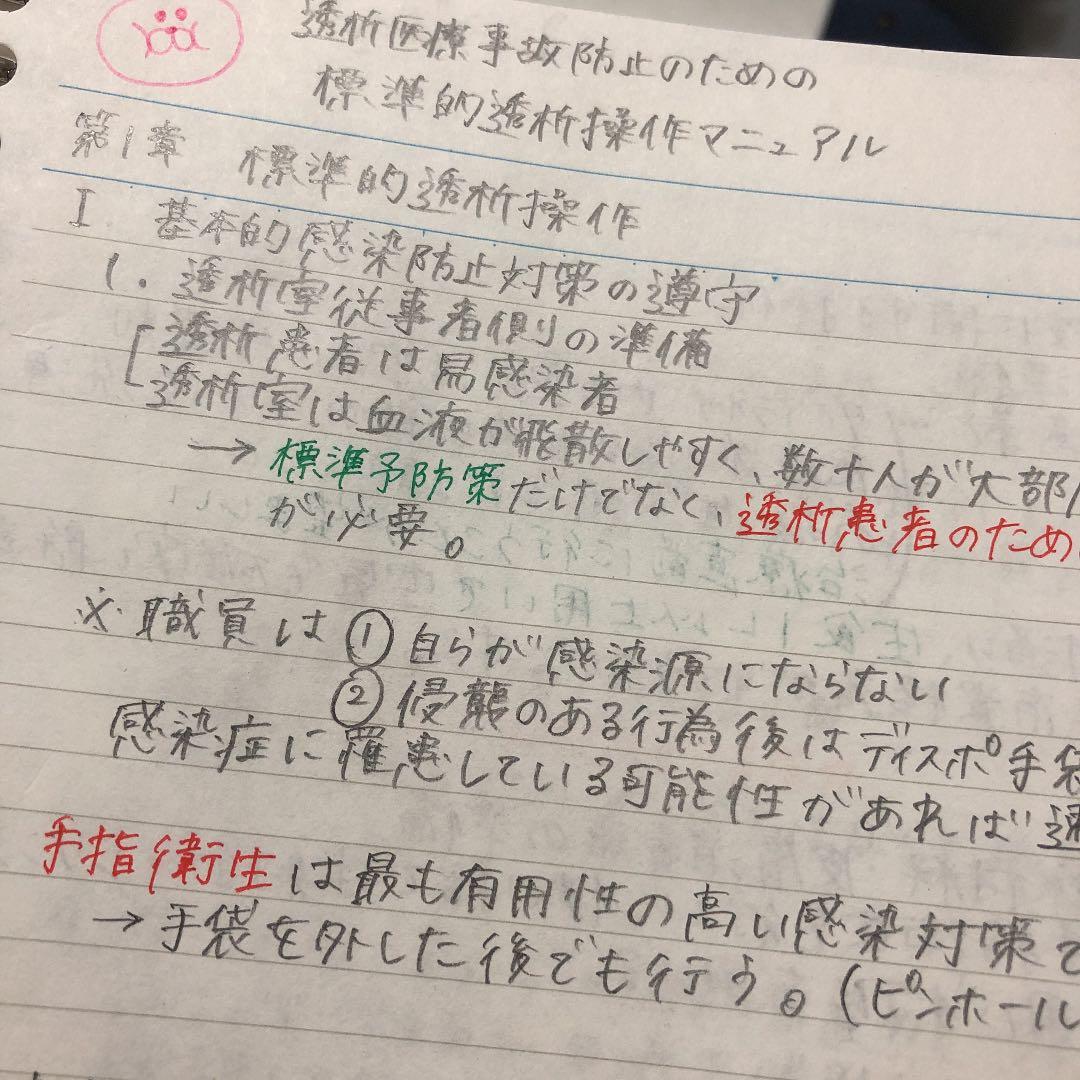 透析医療事故防止のための
標準的透析操作マニュアル
第1章 標準的透析操作
I. 基本的感染防止対策の遵守
1. 透析室従事者側の準備
透析患者は易感染者
透析室は血液が飛散しやすく、数十人が大部
→ 標準予防策だけでなく、透析患者のため
が必要。
※職員は ① 自らが感染源にならない
② 侵襲のある行為後はディスポ手袋
感染症に罹患している可能性があれば
手指衛生は最も有用性の高い感染対策で
→ 手袋を外した後でも行う。(ピンホール